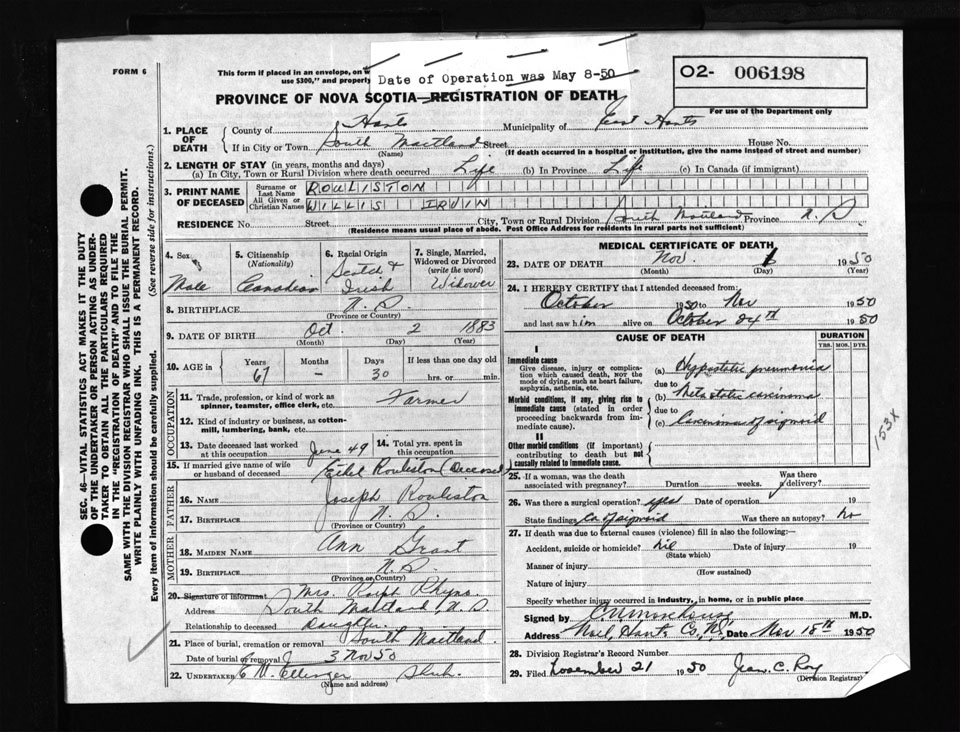 FORM 6
This form if placed in an envelope, on w
use $300," and property
Date of Operation was May 8-50
O2- 006198
For use of the Department only
PROVINCE OF NOVA SCOTIA—REGISTRATION OF DEATH
1. PLACE OF DEATH { County of Hants Municipality of East Hants
If in City or Town South Maitland Street House No.
(Name) (If death occurred in a hospital or institution, give the name instead of street and number)
2. LENGTH OF STAY (in years, months and days)
(a) In City, Town or Rural Division where death occurred Life (b) In Province Life (c) In Canada (if immigrant)
3. PRINT NAME OF DECEASED { Surname or Last Name ROULISTON
All Given or Christian Names WILLIS IRVIN
RESIDENCE No. Street City, Town or Rural Division South Maitland Province N.S
(Residence means usual place of abode. Post Office Address for residents in rural parts not sufficient)
4. Sex Male
5. Citizenship (Nationality) Canadian
6. Racial Origin Scotch & Irish
7. Single, Married, Widowed or Divorced (write the word) Widower
8. BIRTHPLACE N.S.
(Province or Country)
9. DATE OF BIRTH Oct. 2 1883
(Month) (Day) (Year)
10. AGE in { Years 67 Months – Days 30 If less than one day old hrs. or min.
OCCUPATION
11. Trade, profession, or kind of work as spinner, teamster, office clerk, etc. Farmer
12. Kind of industry or business, as cotton-mill, lumbering, bank, etc.
13. Date deceased last worked at this occupation June 49
14. Total yrs. spent in this occupation
15. If married give name of wife or husband of deceased Ethel Rouliston (Deceased)
FATHER
16. Name Joseph Rouliston
17. Birthplace N.S.
(Province or Country)
MOTHER
18. Maiden Name Ann Grant
19. Birthplace N.S.
(Province or Country)
20. Signature of informant Mrs. Ralph Rhyno
Address South Maitland, N.S
Relationship to deceased Daughter.
21. Place of burial, cremation or removal South Maitland.
Date of burial or removal 3 Nov 50
22. UNDERTAKER E M. Ettinger Shub.
(Name and address)
MEDICAL CERTIFICATE OF DEATH
23. DATE OF DEATH Nov. 1950
(Month) (Day) (Year)
24. I HEREBY CERTIFY that I attended deceased from:
October 1950 to Nov 1950
and last saw him alive on October 24th 1950
CAUSE OF DEATH
DURATION
YRS. MOS. DYS.
I
Immediate cause
Give disease, injury or complication which caused death, NOT the mode of dying, such as heart failure, asphyxia, asthenia, etc.
(a) Hypostatic pneumonia
due to
Morbid conditions, if any, giving rise to immediate cause (stated in order proceeding backwards from immediate cause).
(b) Metastatic carcinoma
due to
(c) Carcinoma of sigmoid
II
Other morbid conditions (if important) contributing to death but not causally related to immediate cause.
153X
25. If a woman, was the death associated with pregnancy? Duration weeks. Was there delivery?
26. Was there a surgical operation? yes Date of operation 19
State findings Ca of sigmoid Was there an autopsy? no
27. If death was due to external causes (violence) fill in also the following:—
Accident, suicide or homicide? nil Date of injury 19
(State which)
Manner of injury
(How sustained)
Nature of injury
Specify whether injury occurred in industry, in home, or in public place
Signed by M.D.
Address Noel, Hants Co, N.S. Date Nov 18th 1950
28. Division Registrar's Record Number
29. Filed November 21 1950 Jean C. Roy
(Division Registrar)
SEC. 46—VITAL STATISTICS ACT MAKES IT THE DUTY
OF THE UNDERTAKER OR PERSON ACTING AS UNDER-
TAKER TO OBTAIN ALL THE PARTICULARS REQUIRED
IN THE "REGISTRATION OF DEATH" AND TO FILE THE
SAME WITH THE DIVISION REGISTRAR WHO SHALL ISSUE THE BURIAL PERMIT.
WRITE PLAINLY WITH UNFADING INK. THIS IS A PERMANENT RECORD.
Every item of information should be carefully supplied. (See reverse side for instructions.)